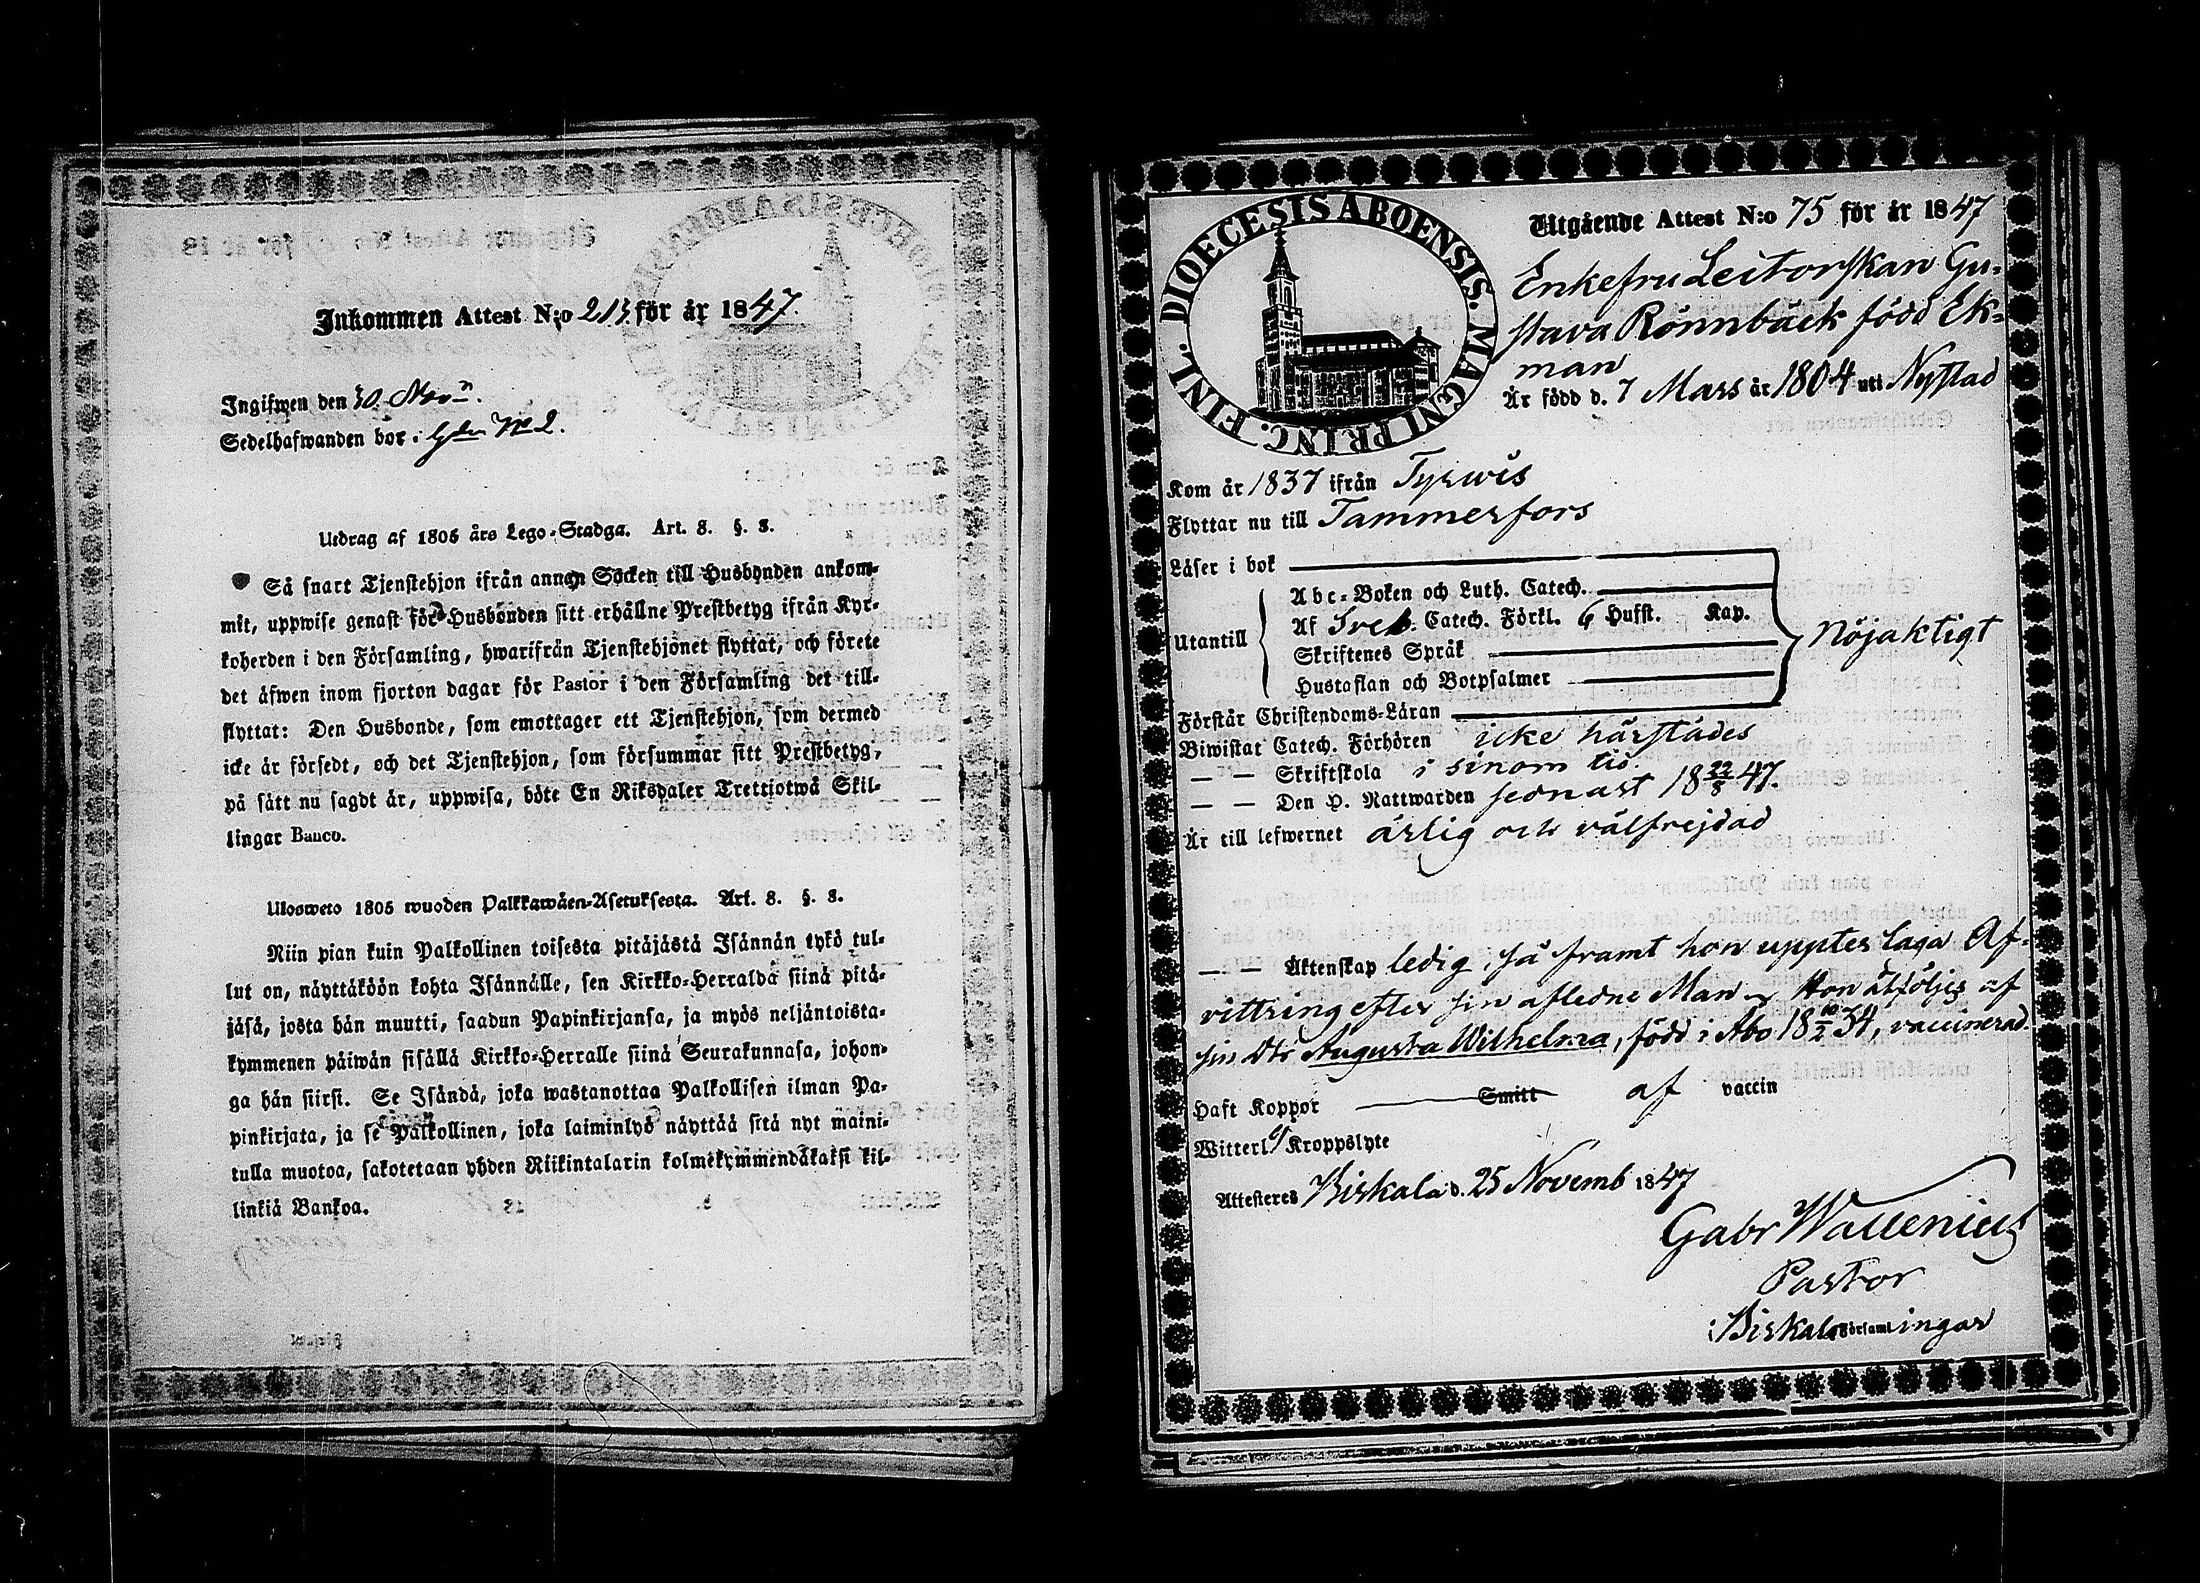 Inkommen Attest N:o 213 för år 1847.
Ingifwen den 30 Nov:
Sedelhafwanden bor i Gln N:o 2.
Utdrag af 1805 års Lego-Stadga. Art. 8. §. 8.
Så snart Tjenstehjon ifrån annan Socken till Husbonden ankom-
mit, uppwise genast för Husbonden sitt erhållne Prestbetyg ifrån Kyr-
koherden i den Församling, hwarifrån Tjenstehjonet flyttat, och förete
det äfwen inom fjorton dagar för Pastor i den Församling det till-
flyttat: Den Husbonde, som emottager ett Tjenstehjon, som dermed
icke är försedt, och det Tjenstehjon, som försummar sitt Prestbetyg,
på sätt nu sagdt är, uppwisa, böte En Riksdaler Trettiotwå Skil-
lingar Banco.
Ulosweto 1805 wuoden Palkkawäen-Asetuksesta. Art. 8. §. 8.
Niin pian kuin Palkollinen toisesta pitäjästä Isännän tykö tul-
lut on, näyttäköön kohta Isännälle, sen Kirkko-Herralda siinä pitä-
jäsä, josta hän muutti, saadun Papinkirjansa, ja myös neljäntoista-
kymmenen päiwän sisällä Kirkko-Herralle siinä Seurakunnasa, johon-
ga hän siirsi. Se Isändä, joka wastanottaa Palkollisen ilman Pa-
pinkirjata, ja se Palkollinen, joka laiminlyö näyttää sitä nyt maini-
tulla muotoa, sakotetaan yhden Riikintalarin kolmekymmendäkaksi kil-
linkiä Bankoa.
DIOECESIS ABOENSIS. MAGNI PRINC. FINL.
Utgående Attest N:o 75 för år 1847
Enkefru Leitorskan Gu-
stava Rönnbäck född Ek-
man
Är född d. 7 Mars år 1804 uti Nystad
Kom år 1837 ifrån Tyrwis
Flyttar nu till Tammerfors
Läser i bok
Abc-Boken och Luth. Catech.
Af Sveb. Catech. Förkl. 6 Hufst. Kap.
Utantill
Skriftenes Språk
Nöjaktigt
Hustaflan och Botpsalmer
Förstår Christendoms-Läran
Biwistat Catech. Förhören icke härstädes
— — Skriftskola i sinom tid
— — Den H. Nattwarden sednast 18 22/8 47.
Är till lefwernet ärlig och välfrejdad
— — Äktenskap ledig, så framt hon uppter laga Af-
vittring efter sin aflidne Man. Hon åtföljes af
sin Dtr Augusta Wilhelma, född i Åbo 18 10/2 34, vaccinerad.
Haft Koppor Smitt af vaccin
Witterl. Kroppslyte
Attesteres Birkala d. 25 Novemb 1847
Gabr Wallenius
Pastor
i Birkala Församlingar